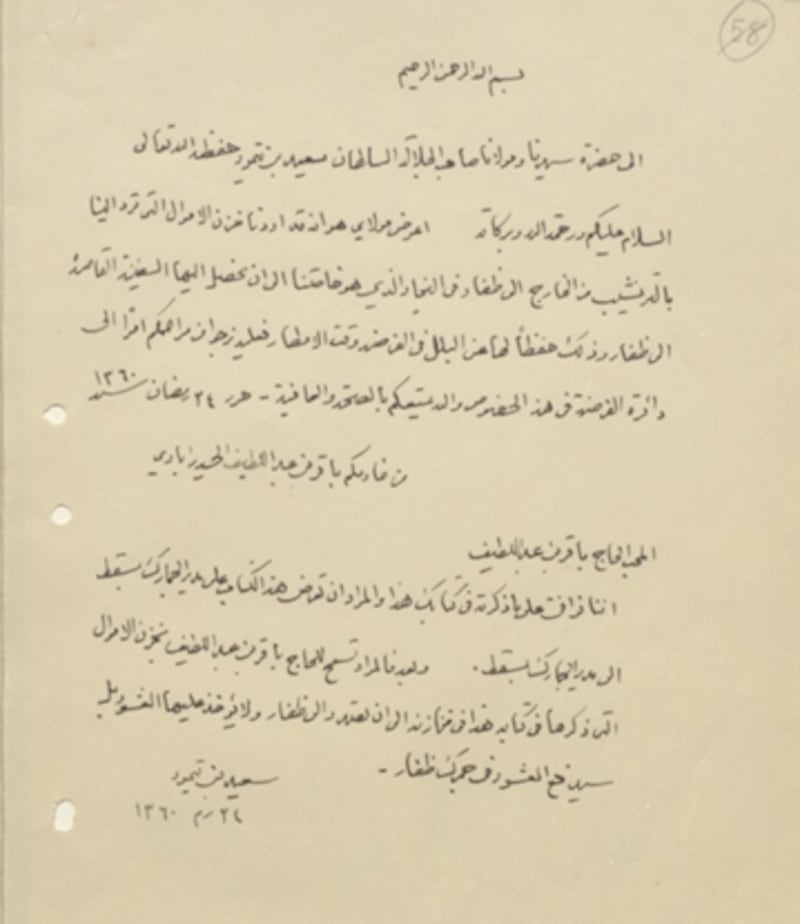 58
بسم الله الرحمن الرحيم
الى حضرة سيدنا ومولانا صاحب الجلالة السلطان سعيد بن تيمور حفظه الله تعالى
السلام عليكم ورحمة الله وبركاته اعرض مولاي هو انه قد اردنا خزن الاموال التي ترد الينا
من الخارج الى ظفار في الذي هو خاصتنا الى ان تحصل اليها السفينة القاصدة
الى ظفار وذلك حفظاً لها عن البلل في الفرضه وقت الامطار نرجو ان مراحمكم امرا الى
دائرة الفرضة في هذا الخصوص والله يمتعكم بالصحة والعافية - حرر ٢٤ رمضان سنه ١٣٦٠
من خادمكم باقر بن عبد اللطيف الحيدرابادي
المحب الحاج باقر بن عبد اللطيف
اننا نوافق على ما ذكرته في كتابك هذا والمراد ان تعرض هذا الكتاب على مدير الجمارك بمسقط
الى مدير الجمارك بمسقط . وبعد فالمراد تسمح للحاج باقر بن عبد اللطيف بخزن الاموال
التي ذكرها في كتابه هذا في مخازنه الى ان تصدر الى ظفار ولا يؤخذ عليها العشور بل
سيدفع العشور في جمرك ظفار -
سعيد بن تيمور
٢٤ رم ١٣٦٠